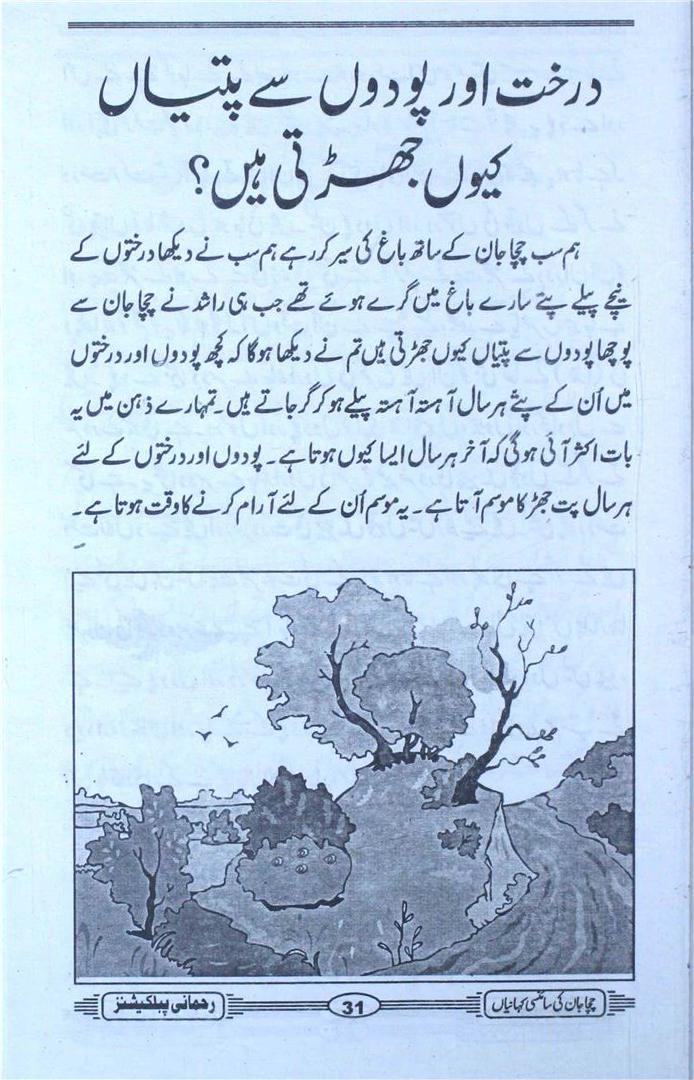 درخت اور پودوں سے پتیاں
کیوں جھڑتی ہیں؟
ہم سب چچا جان کے ساتھ باغ کی سیر کر رہے ہم سب نے دیکھا درختوں کے
نیچے پیلے پتے سارے باغ میں گرے ہوئے تھے جب ہی راشد نے چچا جان سے
پوچھا پودوں سے پتیاں کیوں جھڑتی ہیں تم نے دیکھا ہوگا کہ کچھ پودوں اور درختوں
میں اُن کے پتّے ہر سال آہستہ آہستہ پیلے ہو کر گر جاتے ہیں۔ تمہارے ذہن میں یہ
بات اکثر آئی ہوگی کہ آخر ہر سال ایسا کیوں ہوتا ہے۔ پودوں اور درختوں کے لئے
ہر سال پت جھڑ کا موسم آتا ہے۔ یہ موسم اُن کے لئے آرام کرنے کا وقت ہوتا ہے۔
چچا جان کی سائنسی کہانیاں 31 رحمانی پبلکیشنز